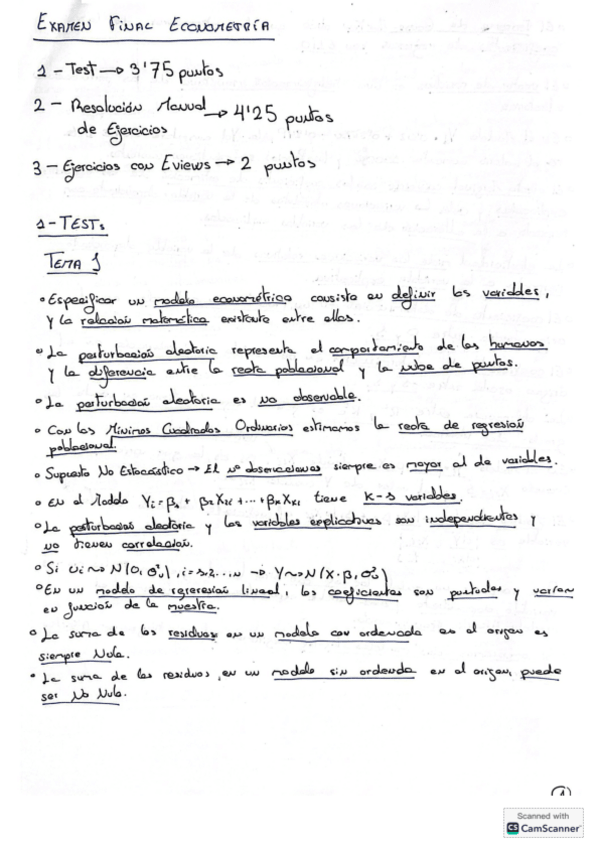 EXAMEN FINAL ECONOMETRÍA
1 - Test → 3'75 puntos
2 - Resolución Manual → 4'25 puntos
de Ejercicios
3 - Ejercicios con Eviews → 2 puntos
1 - TEST:
TEMA 1
• Especificar un modelo econométrico consiste en definir las variables,
y la relación matemática existente entre ellas.
• La perturbación aleatoria representa el comportamiento de los humanos
y la diferencia entre la recta poblacional y la nube de puntos.
• La perturbación aleatoria es no observable.
• Con los Mínimos Cuadrados Ordinarios estimamos la recta de regresión
poblacional.
• Supuesto No Estocástico → El nº observaciones siempre es mayor al de variables.
• En el Modelo Yi = β1 + β2X2i + ... + βkXki tiene K-1 variables.
• La perturbación aleatoria y las variables explicativas son independientes y
no tienen correlación.
• Si Ui ~ N(0, σ²u), i = 1,2...n → Y ~ N(X·β, σ²u)
• En un modelo de regresión lineal, los coeficientes son puntuales y varían
en función de la muestra.
• La suma de los residuos en un modelo con ordenada en el origen es
siempre Nula.
• La suma de los residuos, en un modelo sin ordenada en el origen, puede
ser No Nula.
1
Scanned with
CS CamScanner